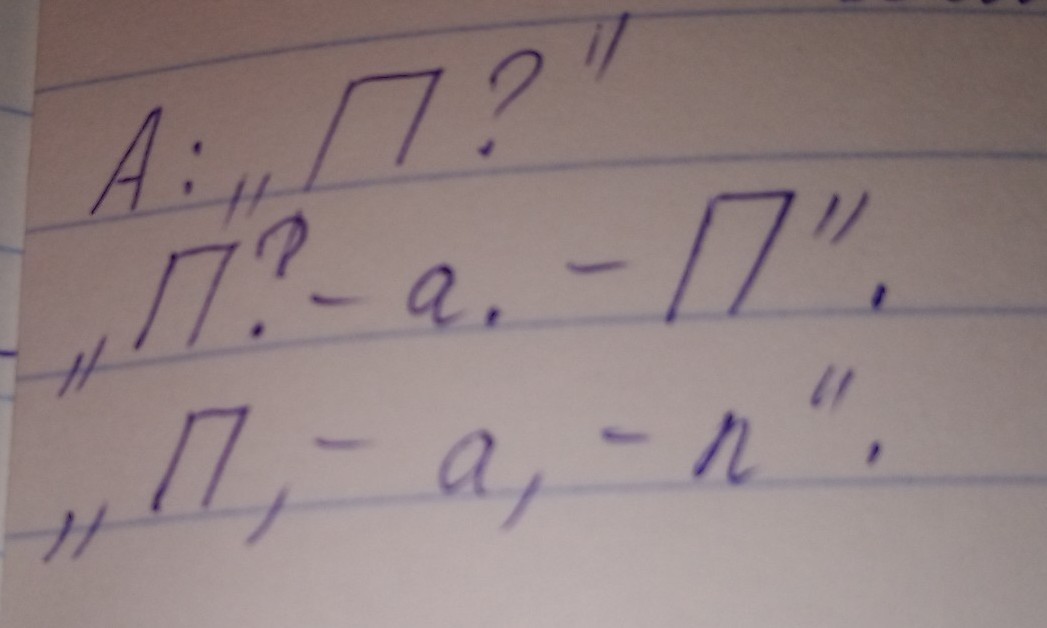 А: „П?"
„П? - а. - П".
„П, - а, - п".